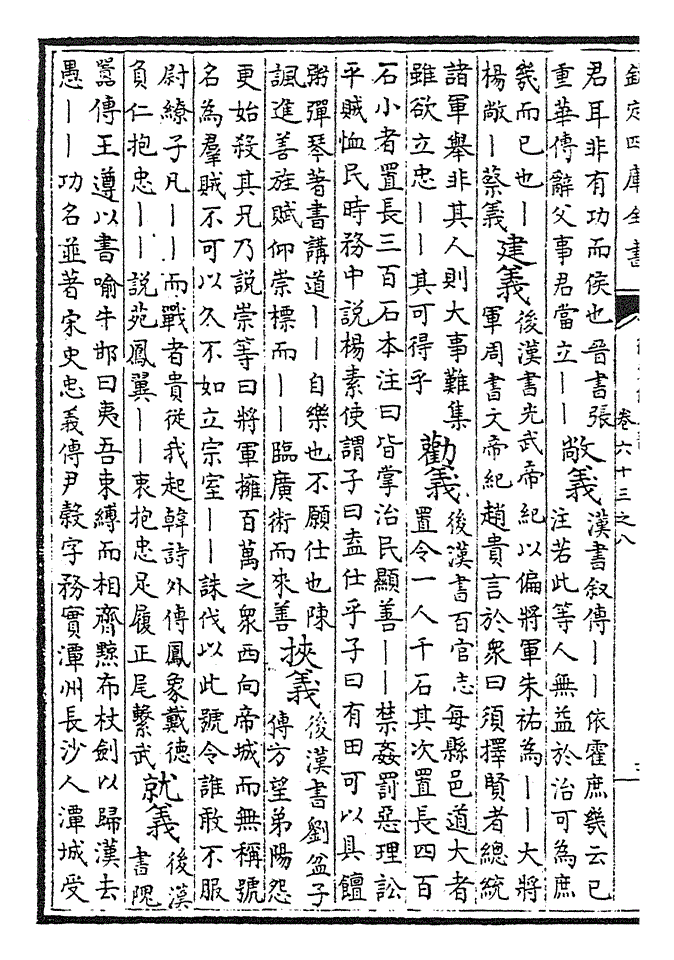 欽定四庫全書
卷六十三之八
君耳非有功而侯也晉書張
重華傳辭父事君當立丨丨
敞義
漢書叙傳丨丨依霍庶幾云已
注若此等人無益於治可為庶
幾而已也丨
楊敞丨蔡義
建義
後漢書光武帝紀以偏將軍朱祐為丨丨大將
軍周書文帝紀趙貴言於衆曰須擇賢者總統
諸軍舉非其人則大事難集
雖欲立忠丨丨其可得乎
勸義
後漢書百官志每縣邑道大者
置令一人千石其次置長四百
石小者置長三百石本注曰皆掌治民顯善丨丨禁姦罰惡理訟
平賊恤民時務中說楊素使謂子曰盍仕乎子曰有田可以具饘
粥彈琴著書講道丨丨自樂也不願仕也陳
諷進善旌賦仰崇標而丨丨臨廣術而來善
挾義
後漢書劉盆子
傳方望弟陽怨
更始殺其兄乃說崇等曰將軍擁百萬之衆西向帝城而無稱號
名為羣賊不可以久不如立宗室丨丨誅伐以此號令誰敢不服
尉繚子凡丨丨而戰者貴從我起韓詩外傳鳳象戴德
負仁抱忠丨丨說苑鳳翼丨丨衷抱忠足履正尾繫武
就義
後漢
書隗
囂傳王遵以書喻牛邯曰夷吾束縛而相齊黥布杖劍以歸漢去
愚丨丨功名並著宋史忠義傳尹穀字務實潭州長沙人潭城受